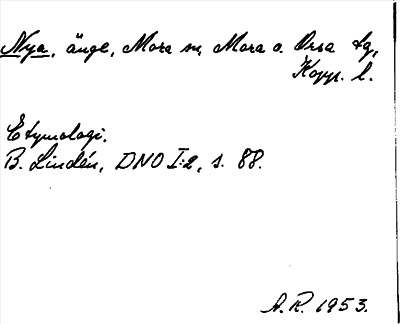 Nya, änge, Mora sn, Mora o. Orsa tg,
Kopp. l.
Etymologi.
B. Lindén, DNO I:2, s. 88.
A. R. 1953.